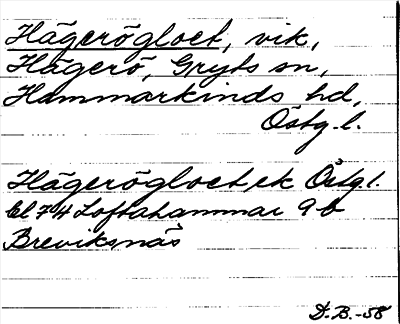 Hägerögloet, vik,
Hägerö, Gryts sn,
Hammarkinds hd,
Östg. l.
Hägerögloet, ek Östg l.
bl 74 Loftahammar 9 b
Breviksnäs
D.B.-58